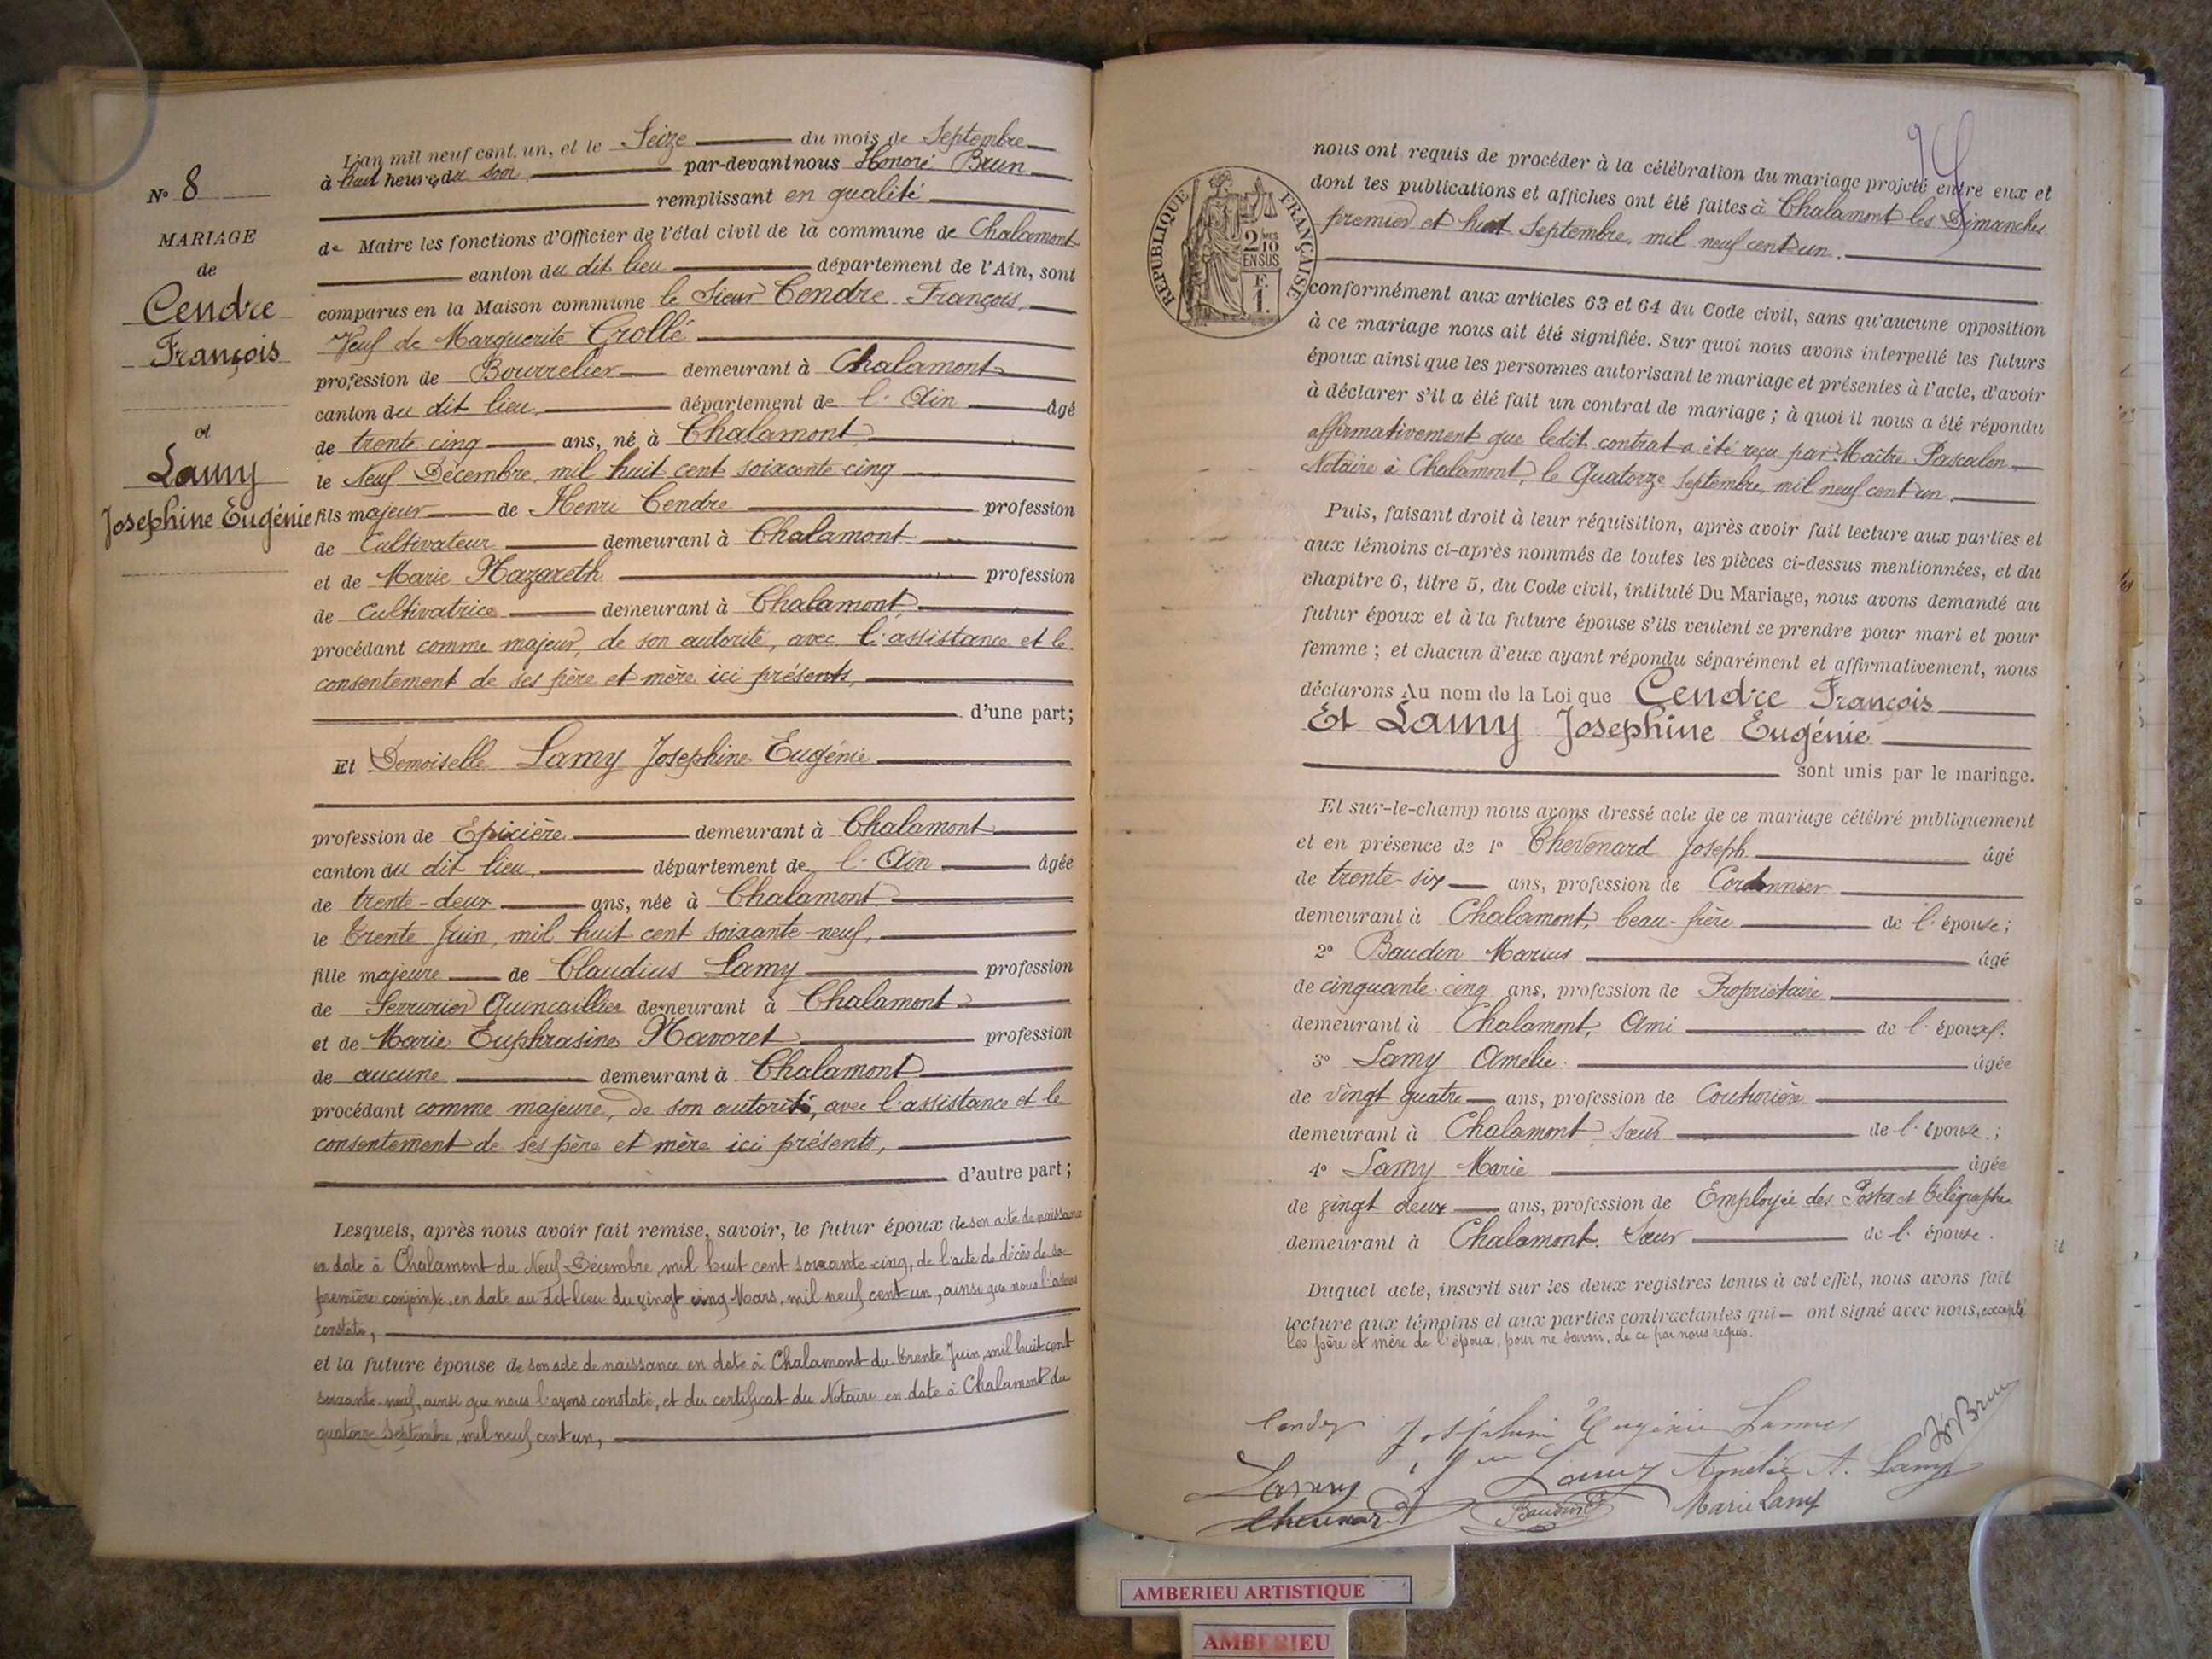 N° 8
MARIAGE
de
Cendre
François
et
Lamy
Josephine Eugénie
L'an mil neuf cent un, et le Seize du mois de Septembre
à huit heures du soir par-devant nous Honoré Brun
remplissant en qualité
de Maire les fonctions d'Officier de l'état civil de la commune de Chalamont
canton du dit lieu département de l'Ain, sont
comparus en la Maison commune le Sieur Cendre François,
Veuf de Marguerite Grollé
profession de Bourrelier demeurant à Chalamont
canton du dit lieu, département de l'Ain âgé
de trente-cinq ans, né à Chalamont
le Neuf Décembre, mil huit cent soixante-cinq
fils majeur de Henri Cendre profession
de Cultivateur demeurant à Chalamont
et de Marie Nazareth profession
de Cultivatrice demeurant à Chalamont
procédant comme majeur, de son autorité, avec l'assistance et le
consentement de ses père et mère ici présents,
d'une part;
Et Demoiselle Lamy Josephine Eugénie
profession de Epicière demeurant à Chalamont
canton du dit lieu, département de l'Ain âgée
de trente-deux ans, née à Chalamont
le trente Juin, mil huit cent soixante-neuf,
fille majeure de Claudius Lamy profession
de Serrurier Quincaillier demeurant à Chalamont
et de Marie Euphrasine Navoret profession
de aucune demeurant à Chalamont
procédant comme majeure, de son autorité, avec l'assistance et le
consentement de ses père et mère ici présents,
d'autre part;
Lesquels, après nous avoir fait remise, savoir, le futur époux de son acte de naissance
en date à Chalamont du Neuf Décembre, mil huit cent soixante-cinq, de l'acte de décès de sa
première conjointe en date au dit lieu du vingt cinq Mars, mil neuf cent-un, ainsi que nous l'avons
constaté,
et la future épouse de son acte de naissance en date à Chalamont du trente Juin, mil huit cent
soixante-neuf, ainsi que nous l'avons constaté, et du certificat du Notaire en date à Chalamont du
quatorze Septembre, mil neuf cent un,
REPUBLIQUE FRANÇAISE
2 10
EN SUS
F.
1.
nous ont requis de procéder à la célébration du mariage projeté entre eux et
dont les publications et affiches ont été faites à Chalamont les Dimanches
premier et huit Septembre, mil neuf cent un.
conformément aux articles 63 et 64 du Code civil, sans qu'aucune opposition
à ce mariage nous ait été signifiée. Sur quoi nous avons interpellé les futurs
époux ainsi que les personnes autorisant le mariage et présentes à l'acte, d'avoir
à déclarer s'il a été fait un contrat de mariage; à quoi il nous a été répondu
affirmativement que ledit contrat a été reçu par Maître Pascalon
Notaire à Chalamont, le Quatorze Septembre, mil neuf cent un.
Puis, faisant droit à leur réquisition, après avoir fait lecture aux parties et
aux témoins ci-après nommés de toutes les pièces ci-dessus mentionnées, et du
chapitre 6, titre 5, du Code civil, intitulé Du Mariage, nous avons demandé au
futur époux et à la future épouse s'ils veulent se prendre pour mari et pour
femme; et chacun d'eux ayant répondu séparément et affirmativement, nous
déclarons Au nom de la Loi que Cendre François
Et Lamy Josephine Eugénie
sont unis par le mariage.
Et sur-le-champ nous avons dressé acte de ce mariage célébré publiquement
et en présence de 1° Chevenard Joseph âgé
de trente-six ans, profession de Cordonnier
demeurant à Chalamont, beau-frère de l'épouse;
2° Baudin Marius âgé
de cinquante-cinq ans, profession de Propriétaire
demeurant à Chalamont, Ami de l'époux;
3° Lamy Amelie âgée
de vingt quatre ans, profession de Couturière
demeurant à Chalamont Sœur de l'épouse;
4° Lamy Marie âgée
de vingt deux ans, profession de Employée des Postes et Télégraphes
demeurant à Chalamont. Sœur de l'épouse.
Duquel acte, inscrit sur les deux registres tenus à cet effet, nous avons fait
lecture aux témoins et aux parties contractantes qui ont signé avec nous, excepté
les père et mère de l'époux, pour ne savoir, de ce par nous requis.
Cendre Joséphine Eugénie Lamy Hé Brun
Lamy Lamy Amélie A. Lamy
Chevenard Baudin Marie Lamy
AMBERIEU ARTISTIQUE
AMBERIEU